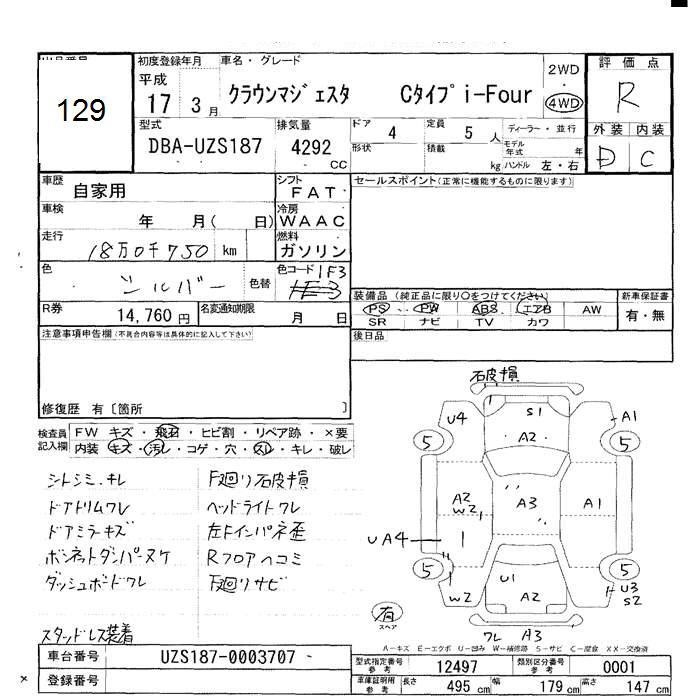 出品番号
129
初度登録年月
平成
17 3月
車名・グレード
クラウンマジェスタ Cタイプ i-Four
2WD
・
4WD
評価点
R
外装 内装
D C
型式
DBA-UZS187
排気量
4292 CC
ドア 4
形状
定員 5 人
積載 kg
ディーラー・並行
モデル年式 年
ハンドル 左・右
車歴 自家用
シフト FAT
車検 年 月( 日)
冷房 WAAC
走行 18万0千750 km
燃料 ガソリン
色 シルバー 色替
色コード 1F3
R券 14,760円
名変通知期限 月 日
セールスポイント(正常に機能するものに限ります)
装備品(純正品に限り○をつけてください)
PS ・ PW ABS エアB AW
SR ナビ TV カワ
新車保証書
有・無
後日品
注意事項申告欄(不具合内容等は具体的に記入して下さい)
修復歴 有〔箇所 〕
検査員記入欄
FW キズ・飛石・ヒビ割・リペア跡・×要
内装・キズ・汚レ・コゲ・穴・スレ・キレ・破レ
シトシミ、キレ
ドアトリムワレ
ドアミラーキズ
ボンネットダンパーヌケ
ダッシュボードワレ
スタッドレス装着
F廻リ石皮損
ヘッドライトワレ
左Fインパネ歪
Rフロアヘコミ
下廻リサビ
石皮損
U4
S1
A1
A2
5
5
A2
W2
A3
A1
UA4
5
5
W2
U1
A2
U3
S2
ワレ A3
有
スペア
A-キズ E-エクボ U-凹み W-補修跡 S-サビ C-腐食 XX-交換済
車台番号 UZS187-0003707
登録番号
型式指定番号 参考 12497
類別区分番号 参考 0001
車庫証明用 参考 長さ 495 cm 幅 179 cm 高さ 147 cm